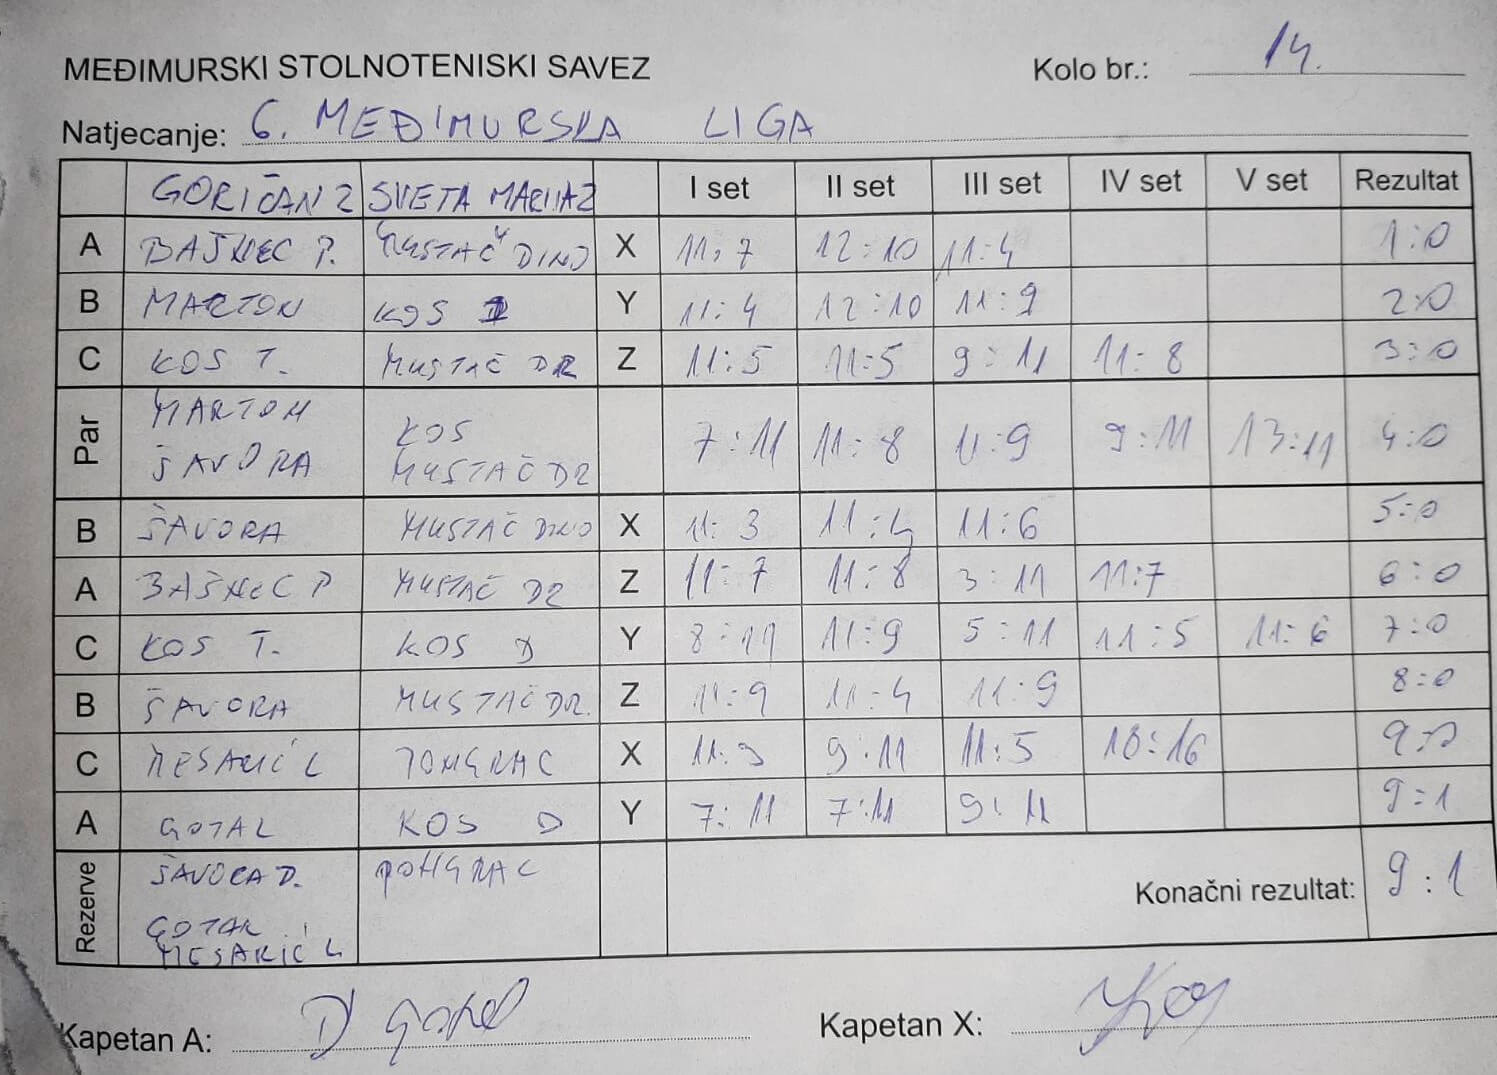 MEĐIMURSKI STOLNOTENISKI SAVEZ Kolo br.: 14.
Natjecanje: 6. MEĐIMURSKA LIGA
GORIČAN 2 SVETA MARIJA 2 I set II set III set IV set V set Rezultat
A BAŠNEC P. MUSTAČ DINO X 11:7 12:10 11:4 1:0
B MARTON KOS D Y 11:4 12:10 11:9 2:0
C KOS T. MUSTAČ DR Z 11:5 11:5 9:11 11:8 3:0
Par MARTON ŠAVORA KOS MUSTAČ DR 7:11 11:8 11:9 9:11 13:11 4:0
B ŠAVORA MUSTAČ DINO X 11:3 11:4 11:6 5:0
A BAŠNEC P MUSTAČ DR Z 11:7 11:8 3:11 11:7 6:0
C KOS T. KOS D Y 8:11 11:9 5:11 11:5 11:6 7:0
B ŠAVORA MUSTAČ DR. Z 11:9 11:4 11:9 8:0
C MESARIĆ L POMGRAC X 11:9 9:11 11:5 18:16 9:0
A GOTAL KOS D Y 7:11 7:11 9:11 9:1
Rezerve ŠAVORA D. POMGRAC
GOTAL
MESARIĆ L
Konačni rezultat: 9:1
Kapetan A: D Gotal Kapetan X: Kos